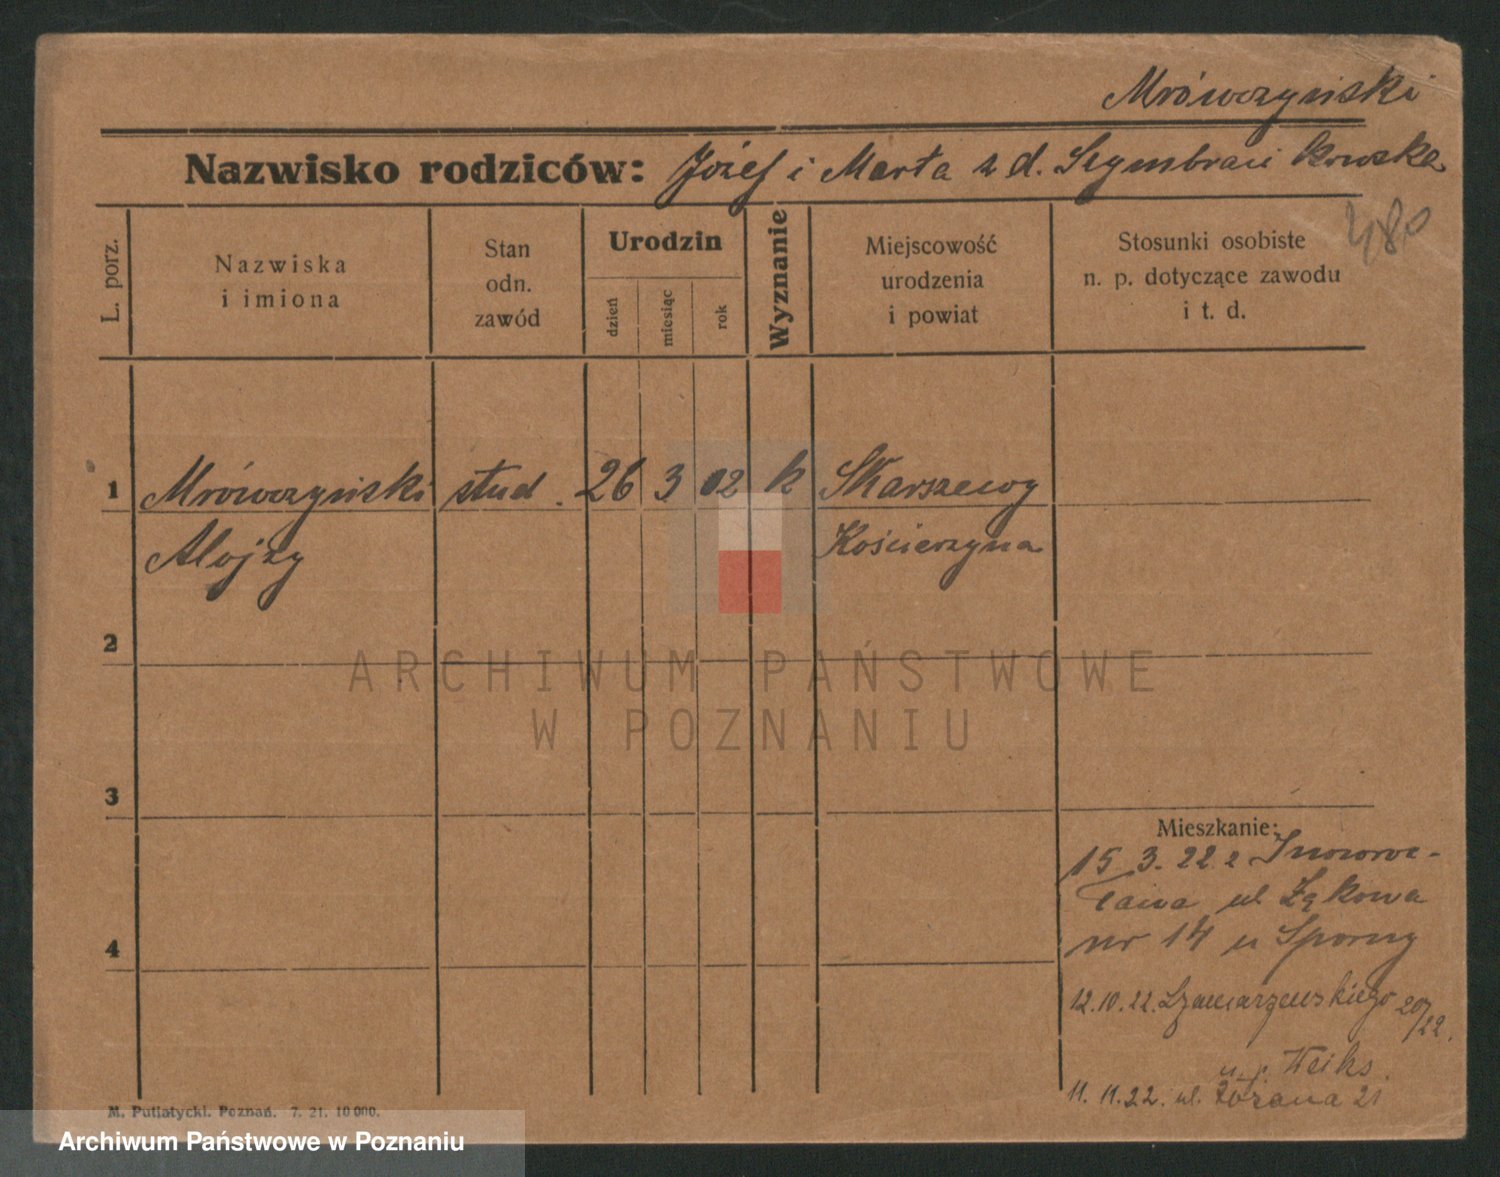 Mrówczyński
Nazwisko rodziców: Józef i Marta z d. Szymbrań kowska
L. porz.
Nazwiska
i imiona
Stan
odn.
zawód
Urodzin
dzień
miesiąc
rok
Wyznanie
Miejscowość
urodzenia
i powiat
Stosunki osobiste
n. p. dotyczące zawodu
i t. d.
1 Mrówczyński stud. 26 3 02 k Skarszewy
Alojzy Kościerzyna
2
ARCHIWUM PAŃSTWOWE
W POZNANIU
3
Mieszkanie:
15.3.22 z Inowroc-
ławia ul
nr 14 u Sporny
4
12.10.22. Szamarzewskiego 20/22.
u. p. Weiks.
11.11.22. ul. Różana 21
M. Putiatycki. Poznań. 7. 21. 10 000.
Archiwum Państwowe w Poznaniu